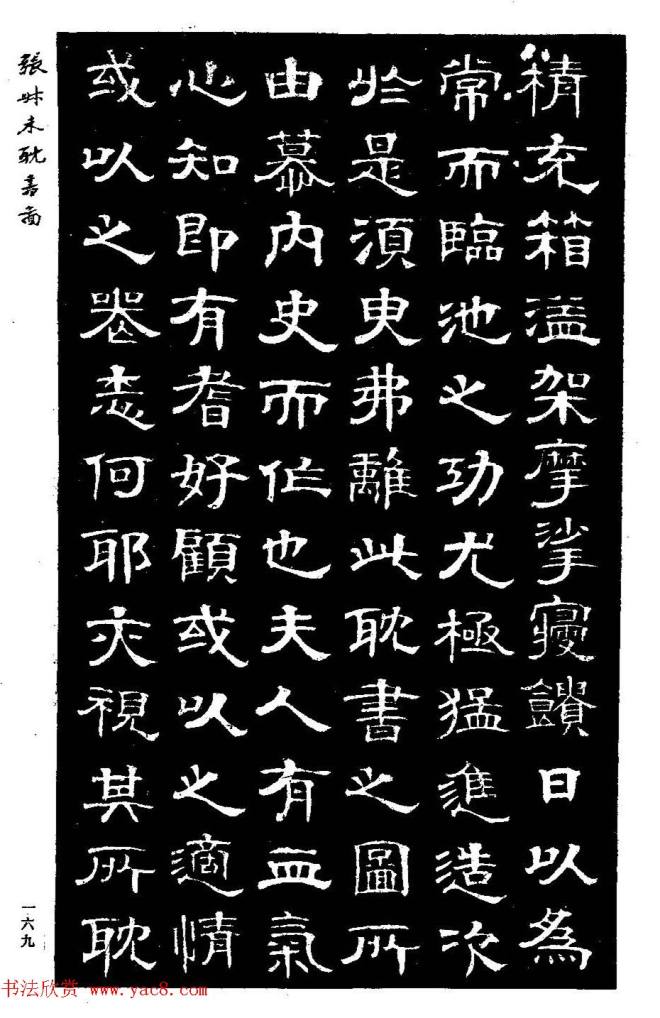 精充箱溢架摩挲寢饋日以為
常而臨池之功尤極猛進造次
於是須臾弗離此耽書之圖所
由慕內史而作也夫人有血氣
心知即有耆好顧或以之適情
或以之喪志何耶亦視其所耽
張叔未耽書圖
一六九
书法欣赏 www.yac8.com